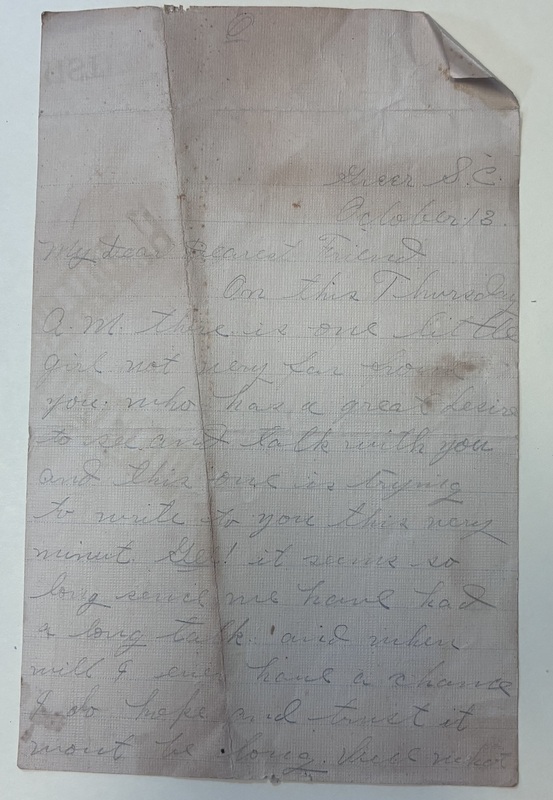 Greer S.C.
October 13.
My Dear Dearest Friend
On this Thursday
A.M. there is one little
girl not very far from
you. who has a great desire
to see and talk with you
and this one is tryng
to write to you this very
minut. Ge! it seems so
long since we have had
a long talk. and when
will I ever have a chance
I do hope and trust it
wont be long.